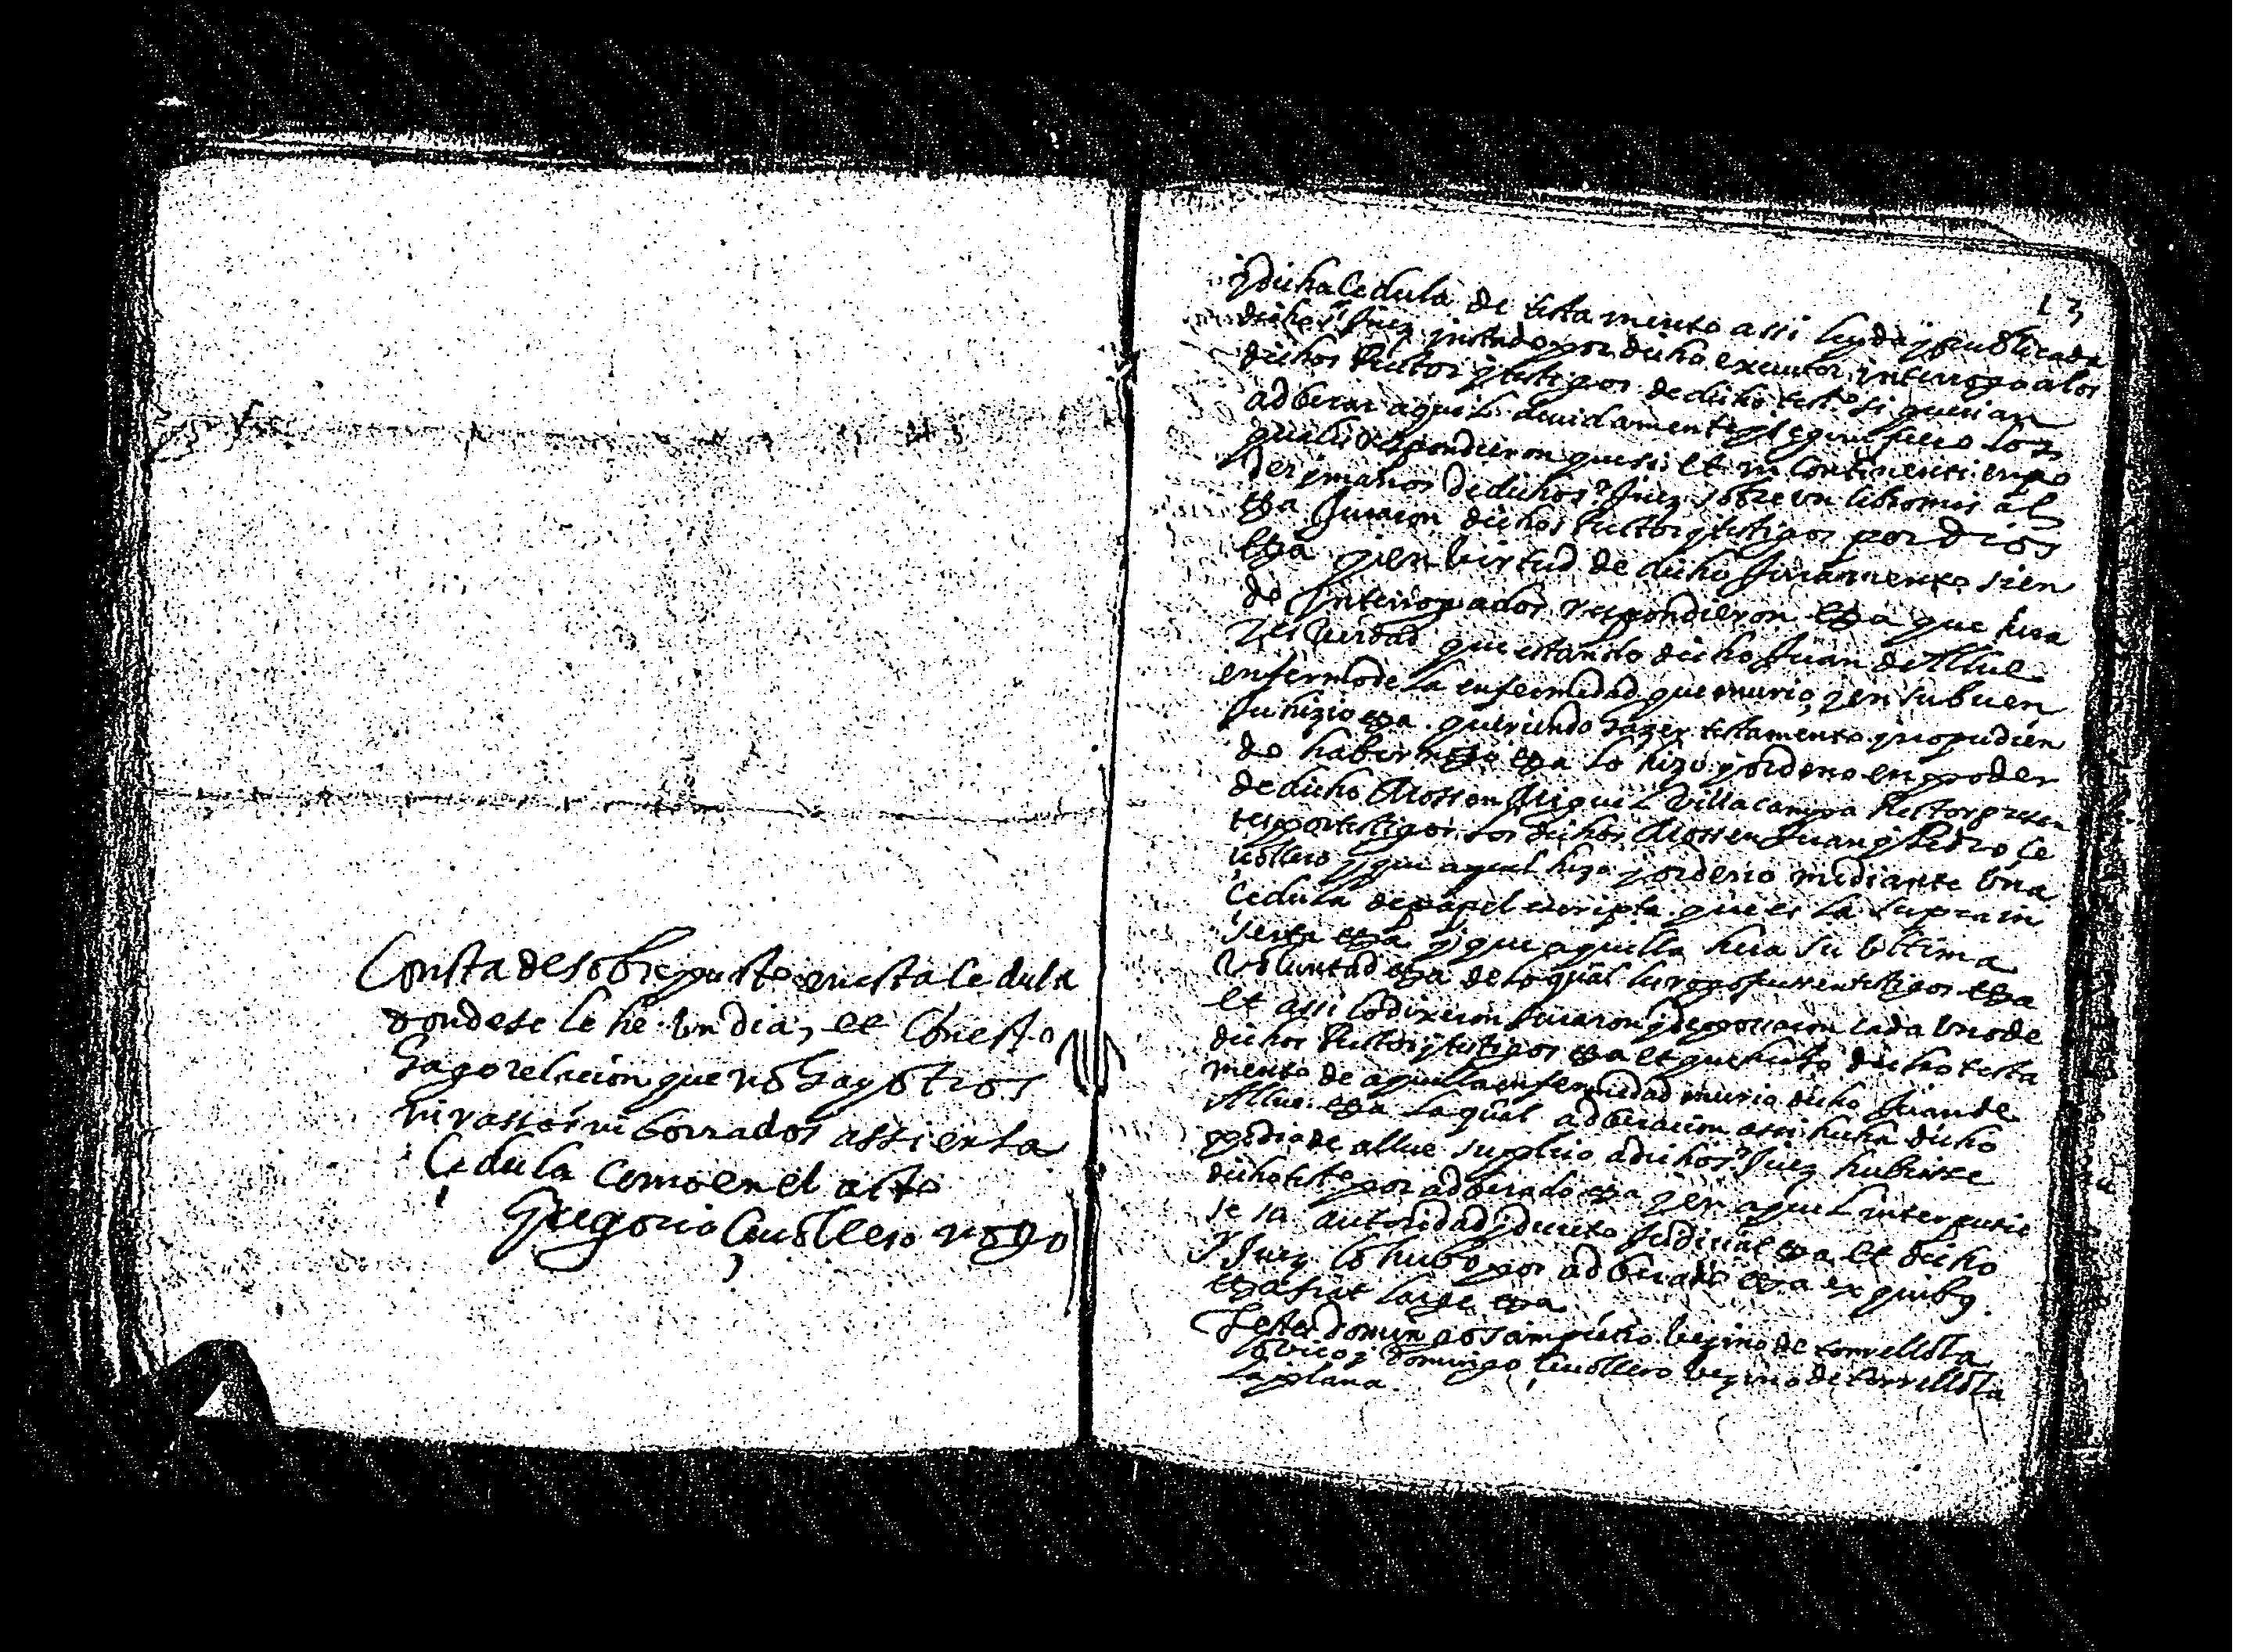 Consta de sobrepuesto en esta Cedula
donde se le he. un dia, et Con esto
hago relacion que no hay otros
ni rassos ni borrados assi en la
Cedula como en el acto
Gregorio Cevollero nots
13
y dicha Cedula de testamento assi leyda y publicada
dicho sr Juez instado por dicho executor interrogo a los
dichos Rector y testigos de dicho testo si querian
adverar aquel devidamente y segun fuero los
quales respondieron que si et in continenti en po
der y manos de dicho sr Juez sobre un libro mis al
etza Juraron dichos Rector y testigos por dios
etza y en virtud de dicho Juramento sien
do Interrogados respondieron etza que hera
verdad que estando dicho Juan de Allue
enfermo de la enfermedad que murio, y en su buen
Juhizio etza. queriendo hazer testamento y no pudien
do haber etza lo hizo y ordeno en poder
de dicho Mossen Miguel Villacampa Rector presen
tes por testigos los dichos Mossen Juan y Pedro Ce
vollero y que aquel hizo y ordeno mediante una
Cedula de papel escripta que es la supra in
serta etza y que aquella hera su ultima
voluntad etza de lo qual los rogo fuessen testigos etza
et assi lo dixeron Juraron y depossaron cada uno de
dichos Rector y testigos etza et que hecho dicho testa
mento de aquella enfermedad murio dicho Juan de
Allue. etza la qual adveracion assi hecha dicho
pedro de allue suplico a dicho sr Juez hubiesse
dicho testo por adverado etza y en aquel interpusie
se sa autoridad y decreto Judicial etza et dicho
sr Juez lo hubo por adverado etza ex quibus
etza fiat large etza
Testes domingo Sampietro vezino de torrellola
lo vico y Domingo Cevollero vezino de torrellola
la plana